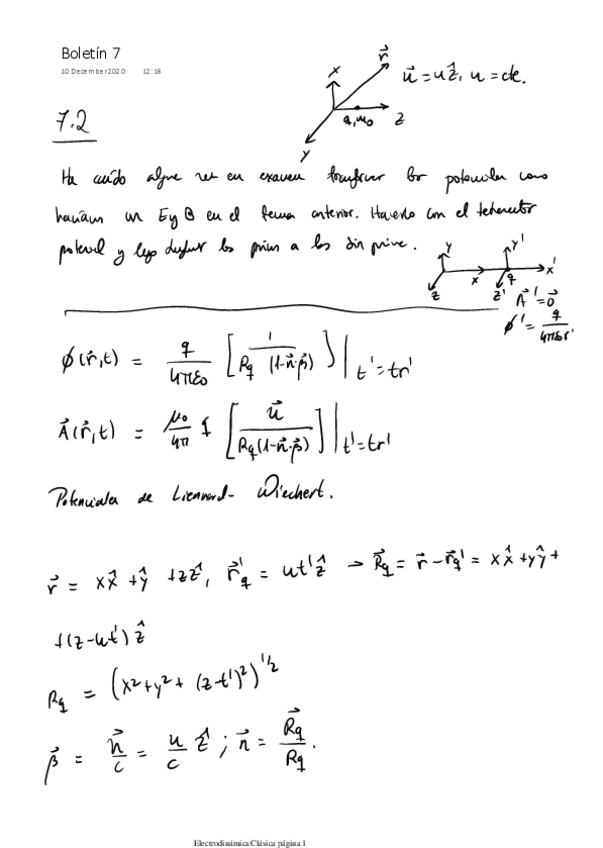 Boletín 7
10 December 2020 12:16
7.2
x r⃗ u⃗ = uẑ, u = cte.
q, u₀ z
y
Ha caído alguna vez en examen transformar los potenciales como
hacíamos en E y B en el tema anterior. Hacerlo con el
y los primas a los sin prima.
y y'
x q x'
z z' A⃗' = 0⃗
ϕ' = q / 4πε₀r'
ϕ(r⃗,t) = q/4πε₀ [1 / Rq (1-n⃗·β⃗)] | t'=tr'
A⃗(r⃗,t) = μ₀/4π q [u⃗ / Rq(1-n⃗·β⃗)] | t'=tr'
Potenciales de Lienward-Wiechert.
r⃗ = xx̂ + ŷ + zẑ, r⃗'q = ut'ẑ → R⃗q = r⃗ - r⃗q' = xx̂ + yŷ +
+(z-ut') ẑ
Rq = (x² + y² + (z-t')²)^1/2
β⃗ = u⃗/c = u/c ẑ ; n⃗ = R⃗q/Rq.
Electrodinámica Clásica página 1